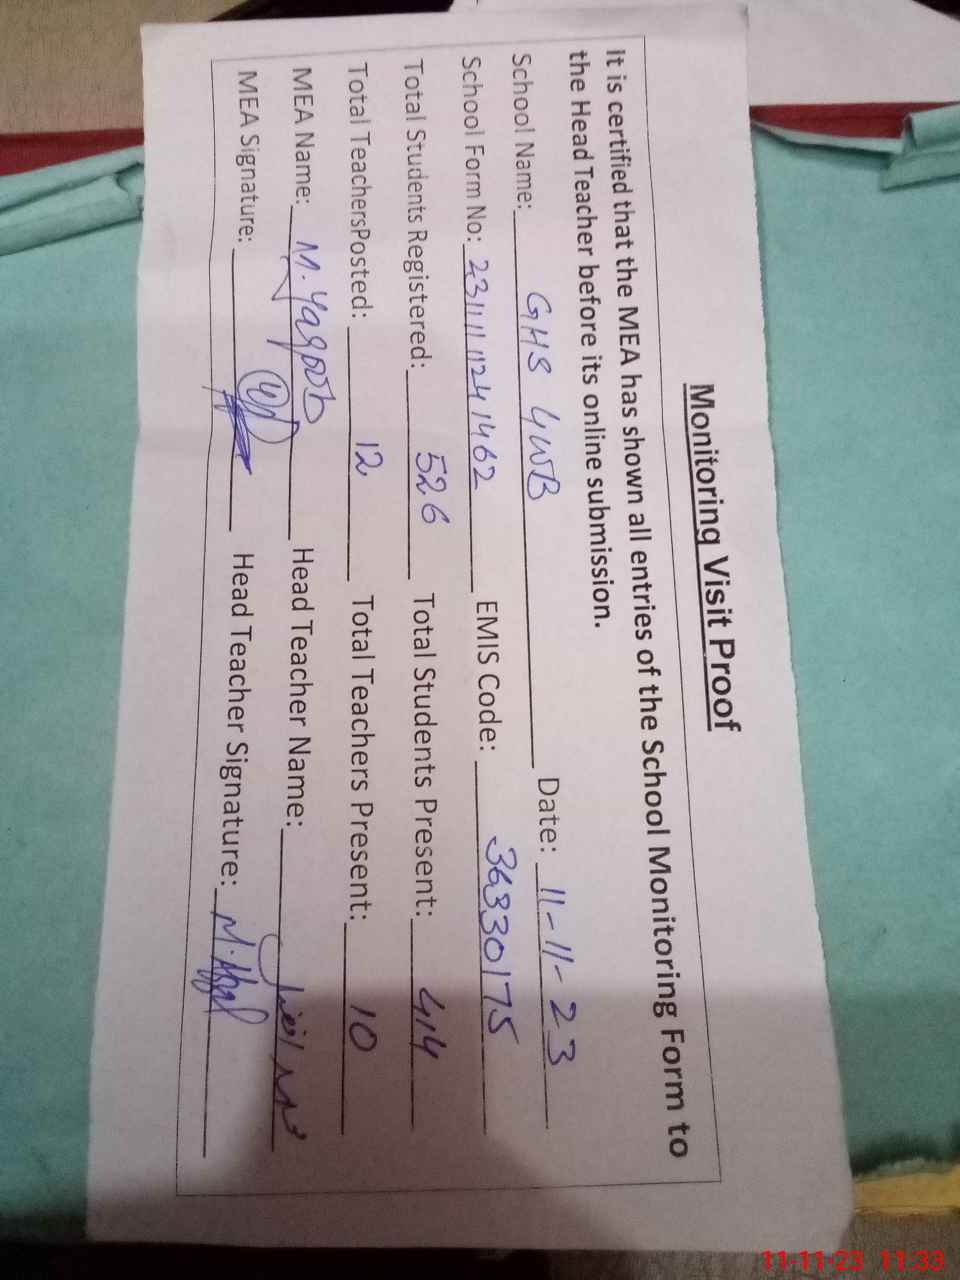 Monitoring Visit Proof
It is certified that the MEA has shown all entries of the School Monitoring Form to
the Head Teacher before its online submission.
School Name: GHS 4WB Date: 11-11-23
School Form No: 231111241462 EMIS Code: 36330175
Total Students Registered: 526 Total Students Present: 414
Total TeachersPosted: 12 Total Teachers Present: 10
MEA Name: M. Yaqoob Head Teacher Name: محمد افضل
MEA Signature: Head Teacher Signature: M. Afzal
11-11-23 11:33